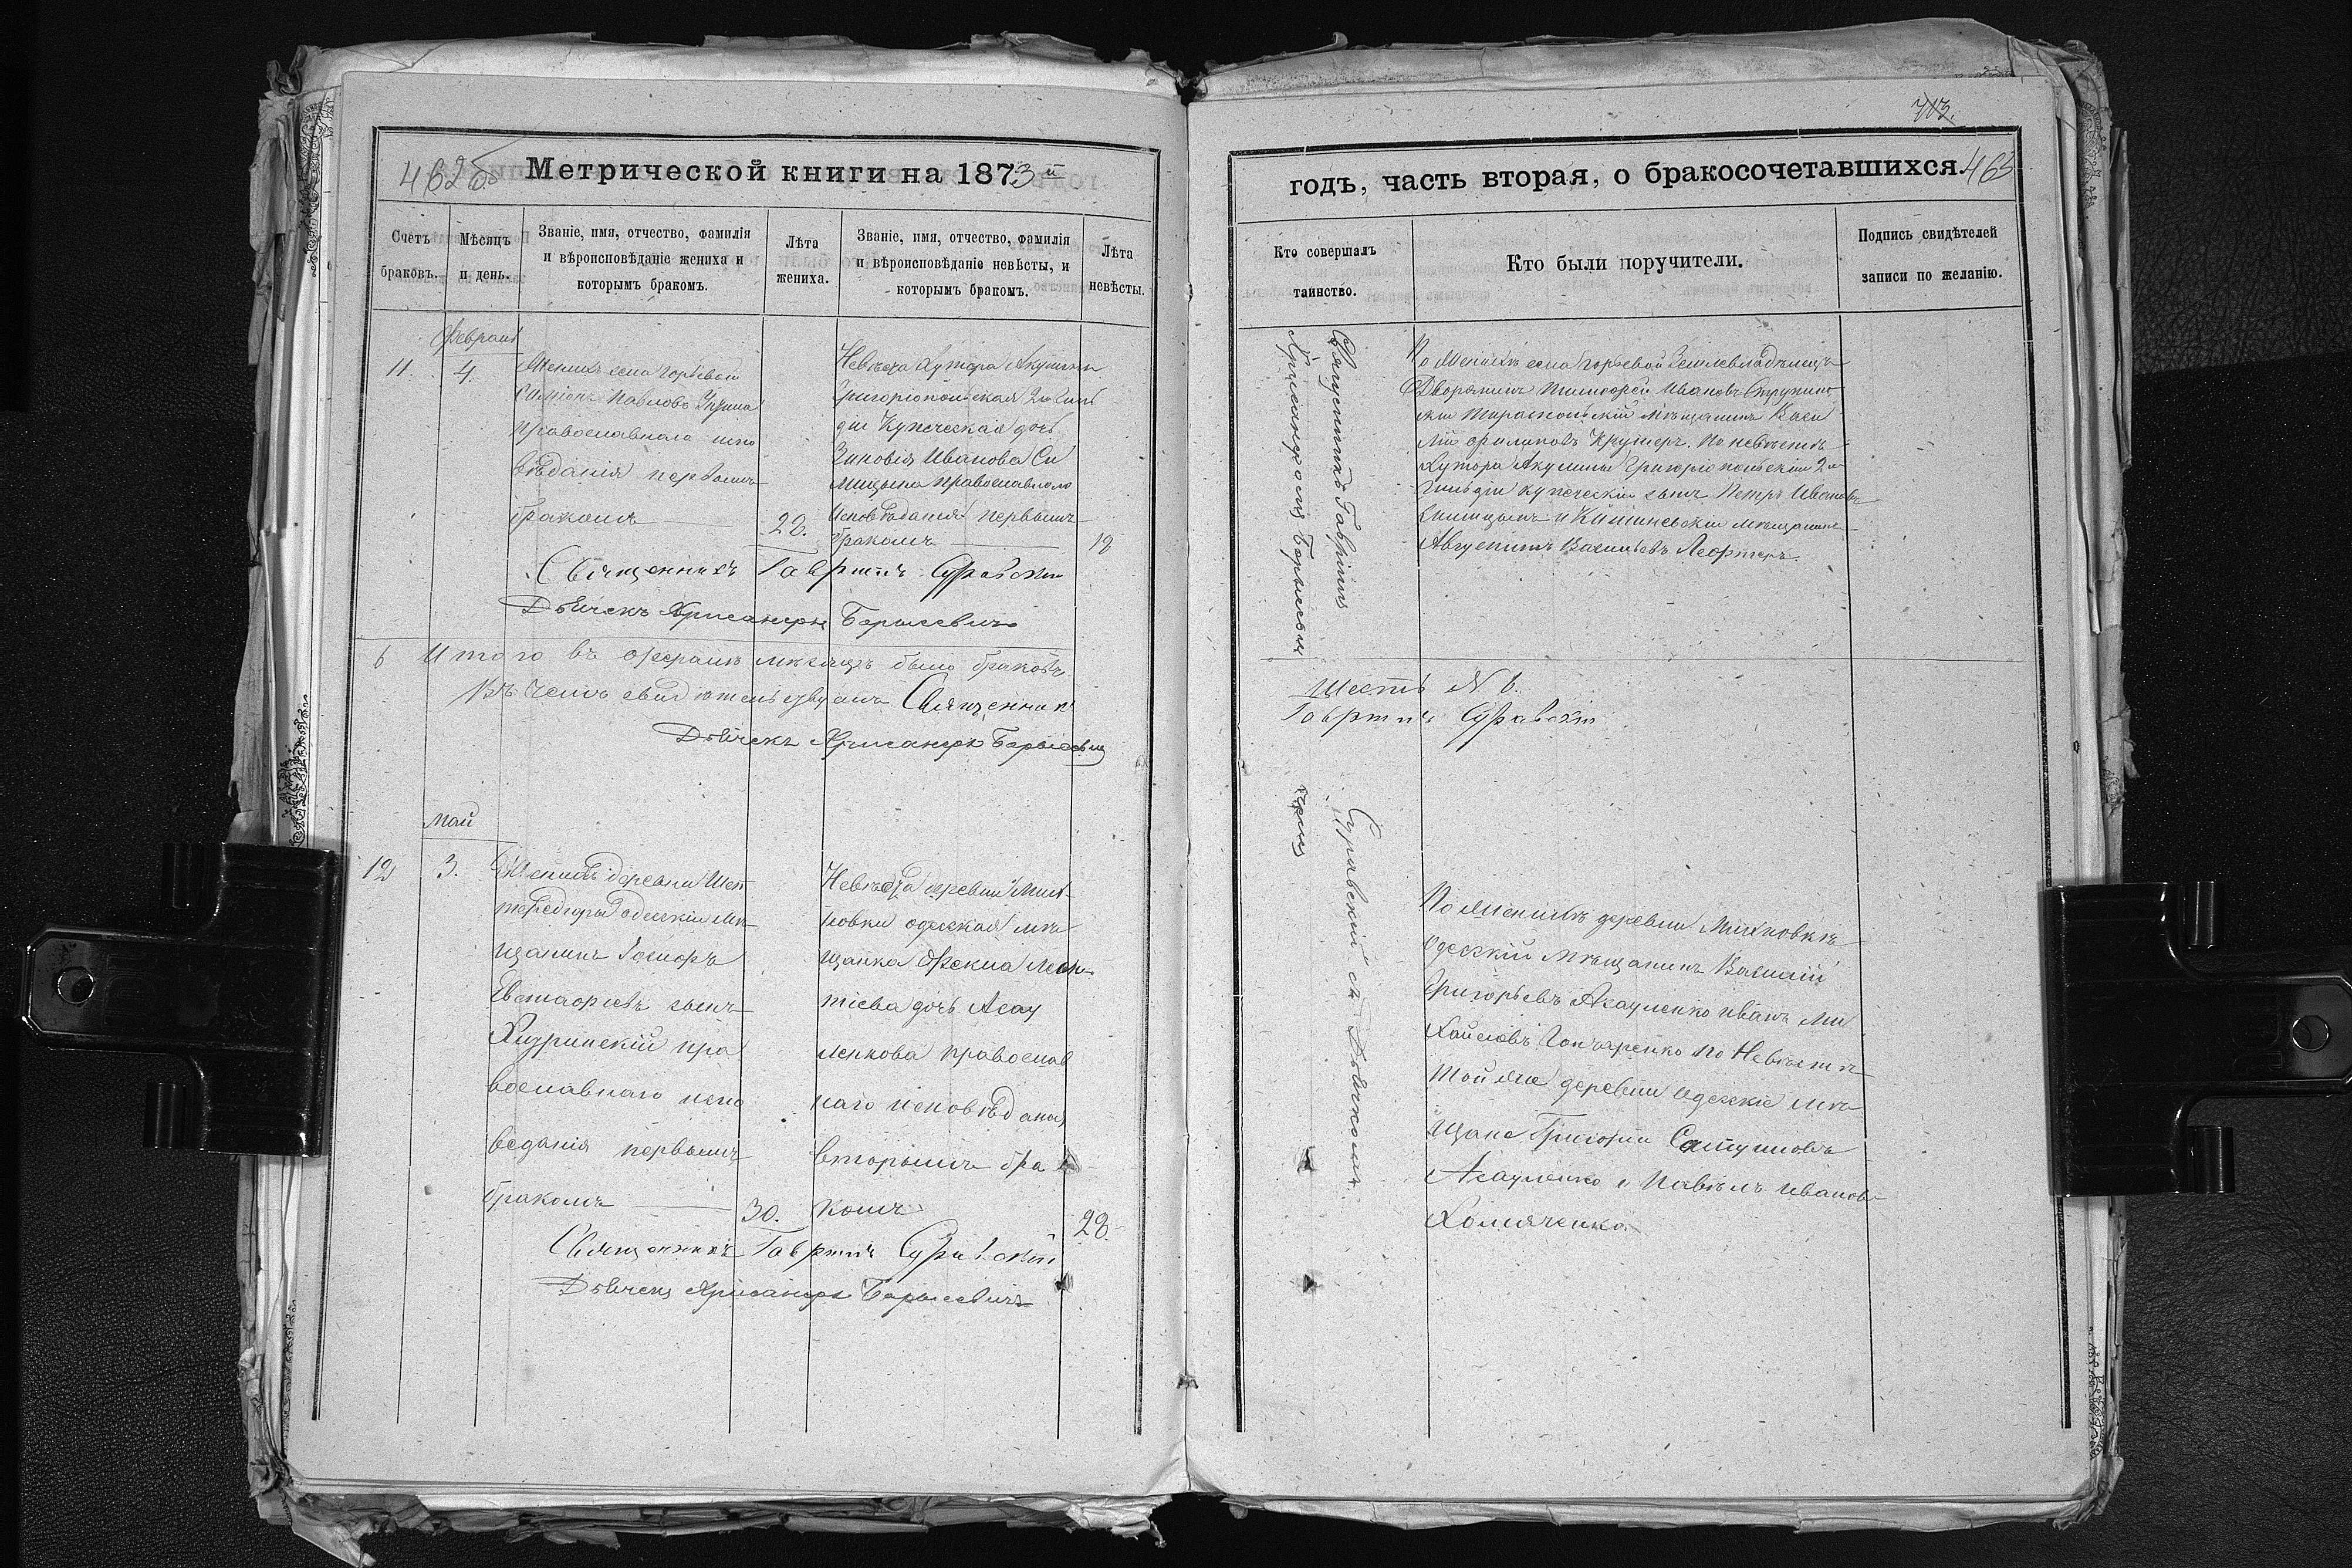 462об
Метрической книги на 1873й
Счетъ браковъ.
Мѣсяцъ и день.
Званіе, имя, отчество, фамилія
и вѣроисповѣданіе жениха и
которымъ бракомъ.
Лѣта
жениха.
Званіе, имя, отчество, фамилія
и вѣроисповѣданіе невѣсты, и
которымъ бракомъ.
Лѣта
невѣсты.
Февраль
11.
4.
Женихъ села Горьевой
Симіонъ Павловъ
православнаго испо
вѣданія первымъ
бракомъ
22.
Невѣста Хутора Акулины
Григоріопольская 2й Гиль
діи Купеческая дочь
Зиновія Иванова Си
мицына православнаго
исповѣданія первымъ
бракомъ
18
Священникъ Гавріилъ Суравскій
Дьячекъ Хрисанфъ Борысевичъ
6 Итого въ Февралѣ мѣсяцѣ было браковъ
Въ чемъ свидѣтельствуемъ Священникъ
Дьячекъ Хрисанфъ Борысевичъ
Май
12
3.
Женихъ деревни
Одескій Мѣ
щанинъ
Евстафіевъ сынъ
пра
вославнаго испо
веданія первымъ
бракомъ
30.
Невѣста деревни Мих
новки одеская мѣ
щанка Фекла Леон
тіева дочь Асау
ленкова православ
наго исповѣданія
вторымъ бра
комъ
28.
Священникъ Гавріилъ Суравскій
Дьячекъ Хрисанфъ Борысевичъ
713.
годъ, часть вторая, о бракосочетавшихся.
463
Кто совершалъ
таинство.
Кто были поручители.
Подпись свидѣтелей
записи по желанію.
Священникъ Гавріилъ Суравскій съ Дьячкомъ
Хрисанфомъ Борысевичемъ
По Женихѣ села Горьевой Землевладѣлецъ
Дворянинъ Тимофей Ивановъ
Тираспольскій мѣщанинъ Васи
лій Филиповъ Крушеръ. По невѣстѣ
Хутора Акулины Григоріопольскій 2й
Гильдіи купеческій сынъ Петръ Ивановъ
Симицынъ и Кишиневскій мѣщанинъ
Августинъ Васильевъ
Шесть N 6.
Гавріилъ Суравскій
По Женихѣ деревни Михновкѣ
Одескій Мѣщанинъ Василій
Григорьевъ Асауленко Иванъ Ми
хайловъ Гончаренко по Невѣстѣ
той же деревни Одескіе мѣ
щане Григорій
Асауленко и Павелъ Ивановъ
Хомяченко